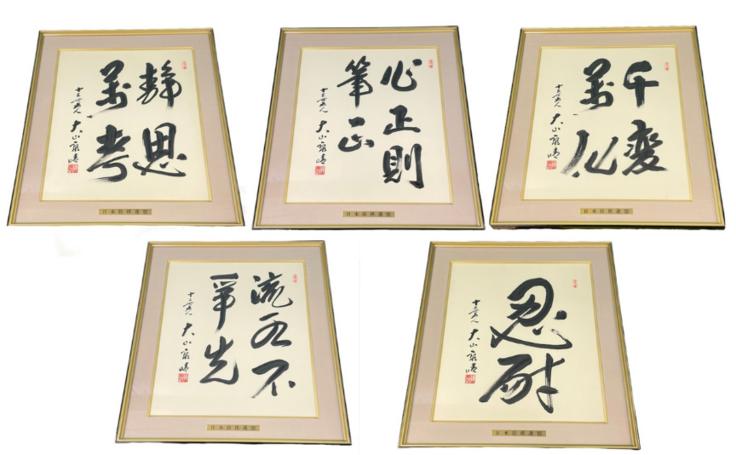 静思
萬考
十五世名人
大山康晴
日本将棋連盟
心正則
筆正
十五世名人
大山康晴
日本将棋連盟
千變
萬化
十五世名人
大山康晴
日本将棋連盟
流水不
爭先
十五世名人
大山康晴
日本将棋連盟
忍耐
十五世名人
大山康晴
日本将棋連盟